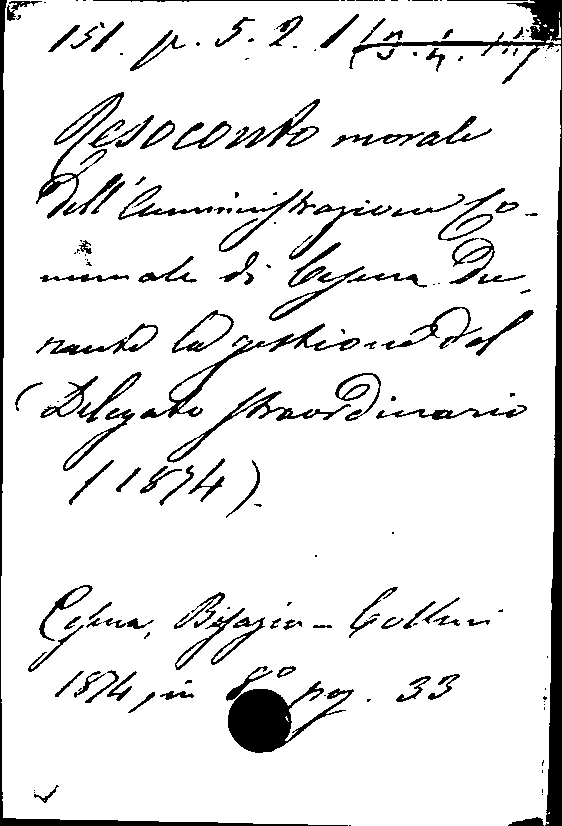 151. p. 5. 2. 1 (3. 4. 111)
Resoconto morale
Dell'Amministrazione Co-
munale di Cesena Du-
rante la gestione del
Delegato straordinario
(1874).
Cesena, Bisazia - Collini
1874, in 8º pag. 33